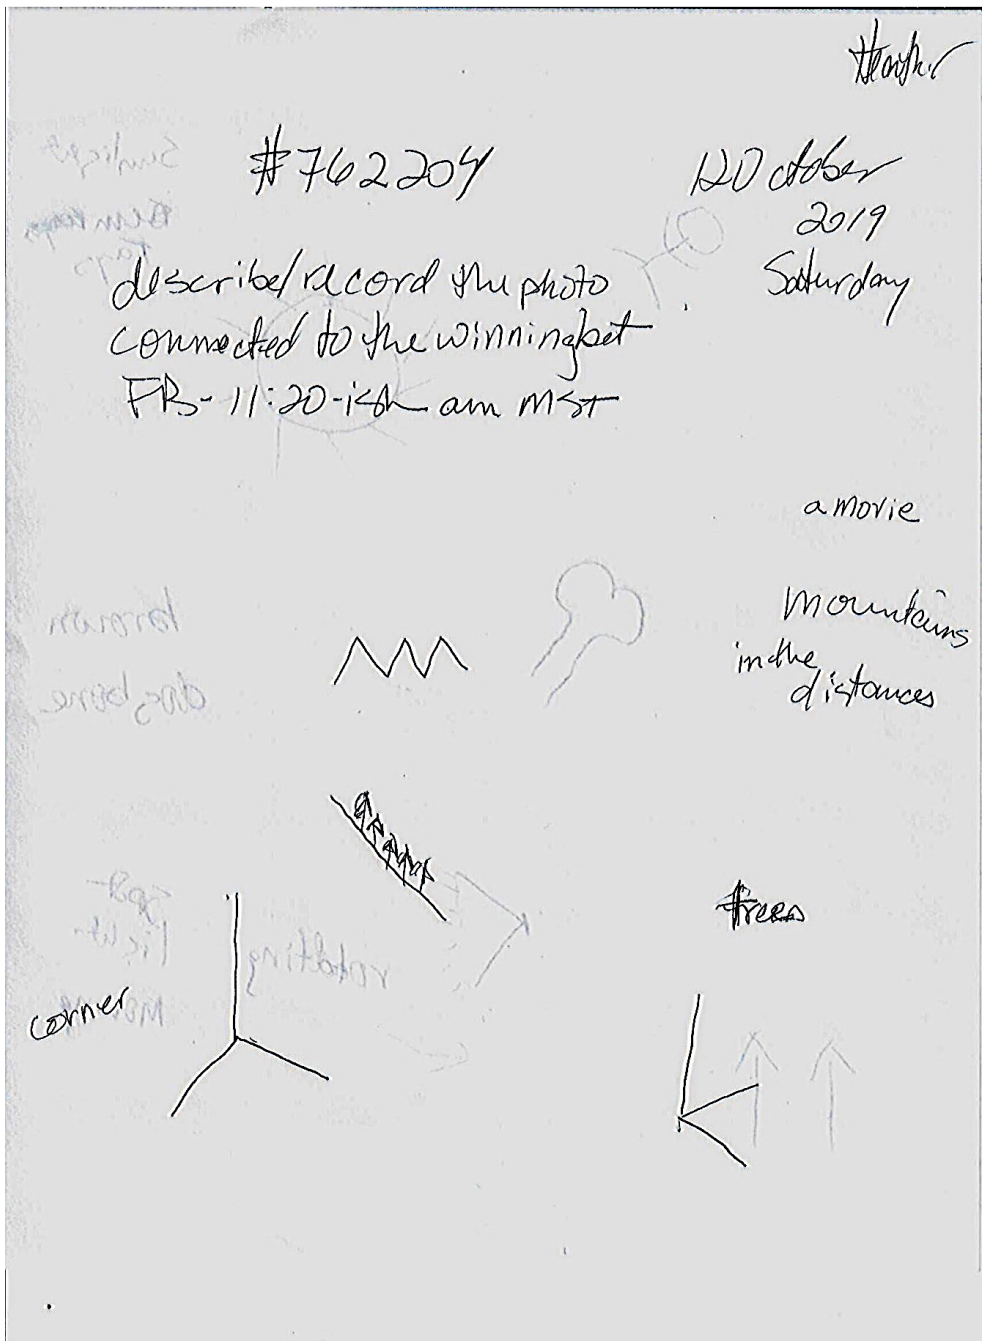 Heather
#762204
12 October
2019
Saturday
describe/record the photo
connected to the winning bet
FB- 11:20-ish am MST
a movie
mountains
in the
distances
trees
corner